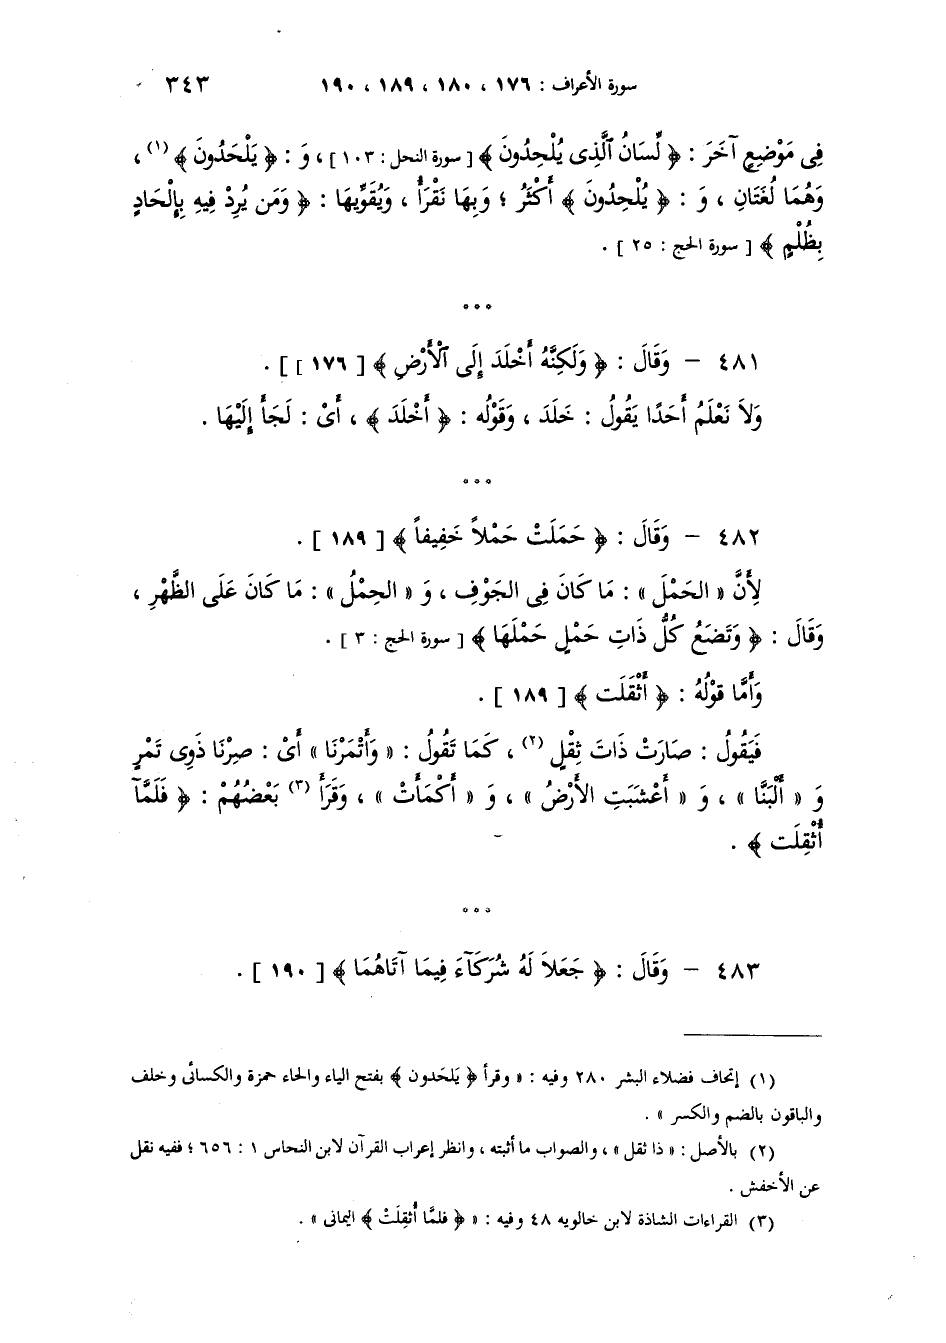 سورة الأعراف : ١٧٦ ، ١٨٠ ، ١٨٩ ، ١٩٠ ٣٤٣
فِى مَوْضِعٍ آخَرَ : ﴿ لِّسَانُ ٱلَّذِى يُلْحِدُونَ ﴾ [ سورة النحل : ١٠٣ ] ، وَ : ﴿ يَلْحَدُونَ ﴾ (١) ،
وَهُمَا لُغَتَانِ ، وَ : ﴿ يُلْحِدُونَ ﴾ أَكْثَرُ ؛ وَبِهَا نَقْرَأُ ، وَيُقَوِّيهَا : ﴿ وَمَن يُرِدْ فِيهِ بِإِلْحَادٍ
بِظُلْمٍ ﴾ [ سورة الحج : ٢٥ ] .
٤٨١ – وَقَالَ : ﴿ وَلَكِنَّهُ أَخْلَدَ إِلَى ٱلْأَرْضِ ﴾ [ ١٧٦ ] .
وَلاَ نَعْلَمُ أَحَدًا يَقُولُ : خَلَدَ ، وَقَوْلُه : ﴿ أَخْلَدَ ﴾ ، أَىْ : لَجَأَ إِلَيْهَا .
٤٨٢ – وَقَالَ : ﴿ حَمَلَتْ حَمْلاً خَفِيفاً ﴾ [ ١٨٩ ] .
لِأَنَّ « الحَمْلَ » : مَا كَانَ فِى الجَوْفِ ، وَ « الحِمْلُ » : مَا كَانَ عَلَى الظَّهْرِ ،
وَقَالَ : ﴿ وَتَضَعُ كُلُّ ذَاتِ حَمْلٍ حَمْلَهَا ﴾ [ سورة الحج : ٣ ] .
وَأَمَّا قَوْلُهُ : ﴿ أَثْقَلَت ﴾ [ ١٨٩ ] .
فَيَقُولُ : صَارَتْ ذَاتَ ثِقْلٍ (٢) ، كَمَا تَقُولُ : « وَأَتْمَرْنَا » أَىْ : صِرْنَا ذَوِى تَمْرٍ
وَ « أَلْبَنَّا » ، وَ « أَعْشَبَتِ الأَرْضُ » ، وَ « أَكْمَأَتْ » ، وَقَرَأَ (٣) بَعْضُهُمْ : ﴿ فَلَمَّآ
أُثْقِلَت ﴾ .
٤٨٣ – وَقَالَ : ﴿ جَعَلاَ لَهُ شُرَكَآءَ فِيمَا آتَاهُمَا ﴾ [ ١٩٠ ] .
(١) إتحاف فضلاء البشر ٢٨٠ وفيه : « وقرأ ﴿ يَلحَدون ﴾ بفتح الياء والحاء حمزة والكسائى وخلف
والباقون بالضم والكسر » .
(٢) بالأصل : « ذا ثقل » ، والصواب ما أثبته ، وانظر إعراب القرآن لابن النحاس ١ : ٦٥٦ ؛ ففيه نقل
عن الأخفش .
(٣) القراءات الشاذة لابن خالويه ٤٨ وفيه : « ﴿ فلمَّا أُثقِلَتْ ﴾ اليمانى » .